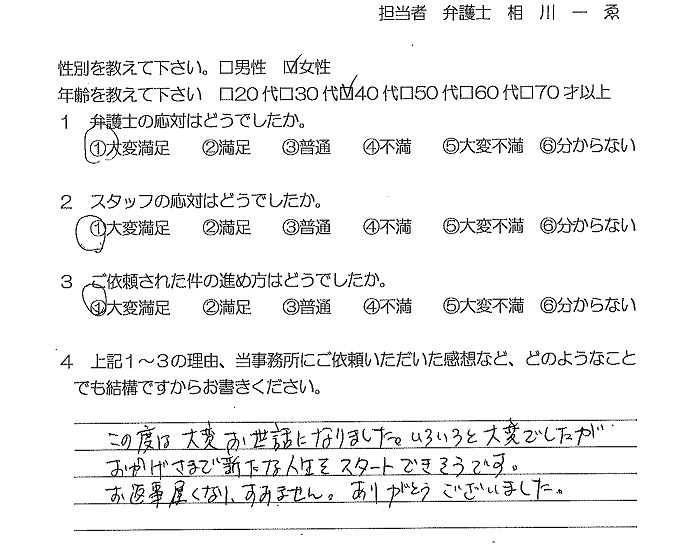 担当者 弁護士 相 川 一 ゑ
性別を教えて下さい。□男性 ☑女性
年齢を教えて下さい □20代□30代☑40代□50代□60代□70才以上
1 弁護士の応対はどうでしたか。
①大変満足 ②満足 ③普通 ④不満 ⑤大変不満 ⑥分からない
2 スタッフの応対はどうでしたか。
①大変満足 ②満足 ③普通 ④不満 ⑤大変不満 ⑥分からない
3 ご依頼された件の進め方はどうでしたか。
①大変満足 ②満足 ③普通 ④不満 ⑤大変不満 ⑥分からない
4 上記1~3の理由、当事務所にご依頼いただいた感想など、どのようなこと
でも結構ですからお書きください。
この度は大変お世話になりました。いろいろと大変でしたが
おかげさまで新たな人生をスタートできそうです。
お返事遅くなり、すみません。ありがとうございました。